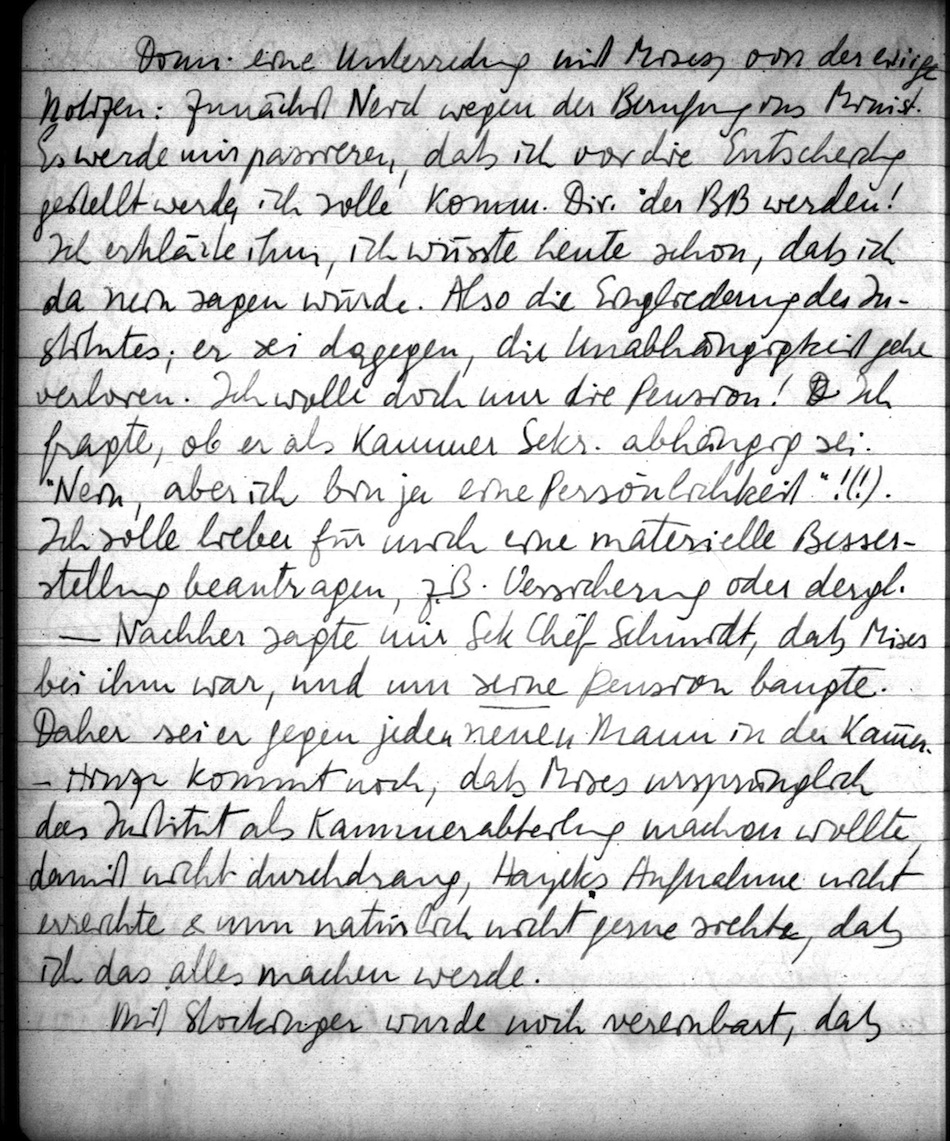 Donn. eine Unterredung mit Mises, von der einige
Notizen: Zunächst Neid wegen der Berufung ins Minist.
Es werde mir passieren, daß ich vor die Entscheidg
gestellt werde, ich solle Komm. Dir. der BB werden!
Ich erklärte ihm, ich wüsste heute schon, daß ich
da nein sagen würde. Also die Eingliederung des In-
stitutes; er sei dagegen, die Unabhängigkeit gehe
verloren. Ich wolle doch nur die Pension! Ich
fragte, ob er als Kammer Sekr. abhängig sei.
"Nein, aber ich bin ja eine Persönlichkeit"!(!).
Ich solle lieber für mich eine materielle Besser-
stellung beantragen, z.B. Versicherung oder dergl.
— Nachher sagte mir Sek Chef Schmidt, daß Mises
bei ihm war, und um seine Pension bangte.
Daher sei er gegen jeden neuen Mann in der Kam̄er.
– Hinzu kommt noch, daß Mises ursprünglich
das Institut als Kammerabteilung machen wollte,
damit nicht durchdrang, Hayeks Aufnahme nicht
erreichte & nun natürlich nicht gerne sieht, daß
ich das alles machen werde.
Mit Stockinger wurde noch vereinbart, daß